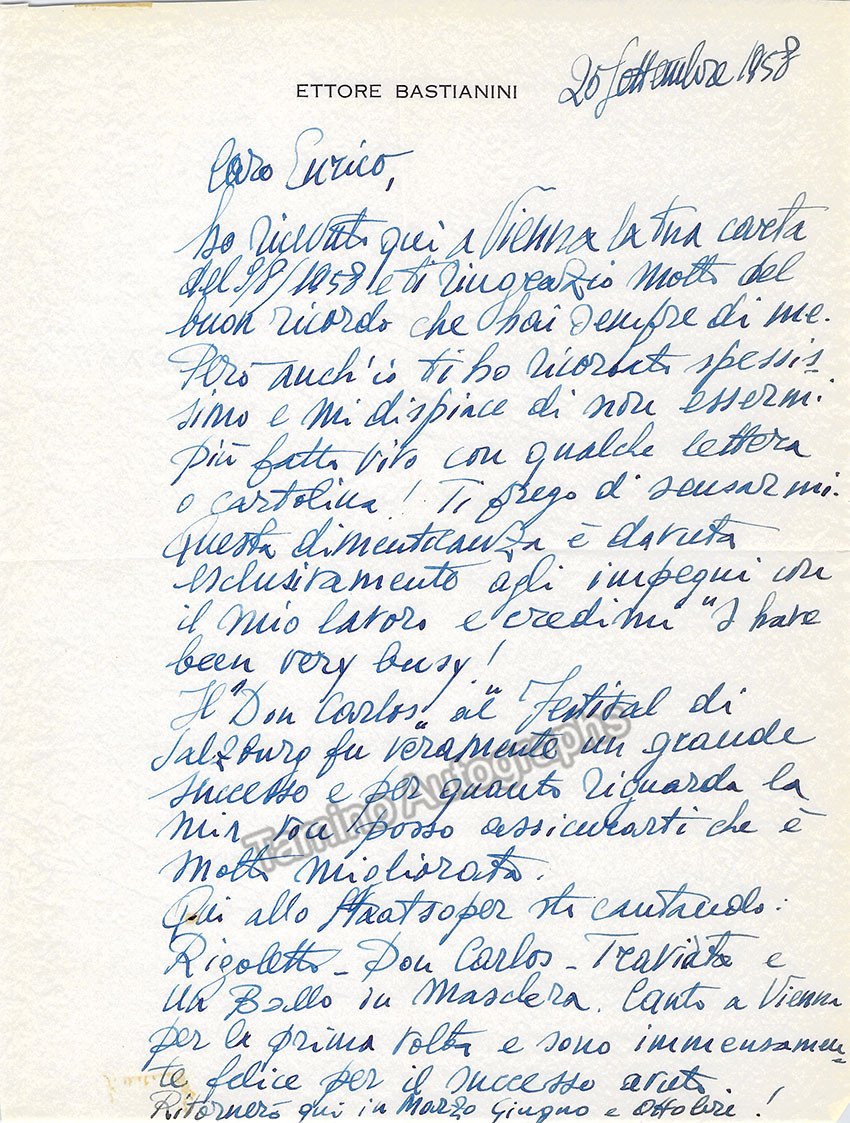 20 Settembre 1958
ETTORE BASTIANINI
Caro Enrico,
ho ricevuto qui a Vienna la tua careta
del 9/8/1958 e ti ringrazio molto del
buon ricordo che hai sempre di me.
Però anch'io ti ho ricordato spessis-
simo e mi dispiace di non essermi
più fatto vivo con qualche lettera
o cartolina! Ti prego di scusarmi.
Questa dimenticanza è dovuta
esclusivamente agli impegni con
il mio lavoro e credimi "I have
been very busy!
Il "Don Carlos" al "Festival di
Salzburg" fu veramente un grande
successo e per quanto riguarda la
mia voce posso assicurarti che è
molto migliorata.
Qui allo Staatsoper sto cantando:
Rigoletto - Don Carlos - Traviata e
Un Ballo in Maschera. Canto a Vienna
per la prima volta e sono immensamen-
te felice per il successo avuto.
Ritornerò qui in Marzo Giugno e Ottobre!
Tamino Autographs